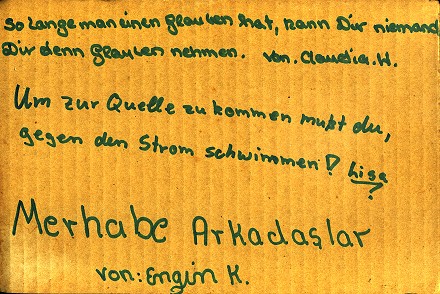 So lange man einen Glauben hat, kann Dir niemand
Dir denn Glauben nehmen. von. Claudia. H.
Um zur Quelle zu kommen mußt du,
gegen den Strom schwimmen! Lisa
Merhabe Arkadaşlar
von: Engin K.